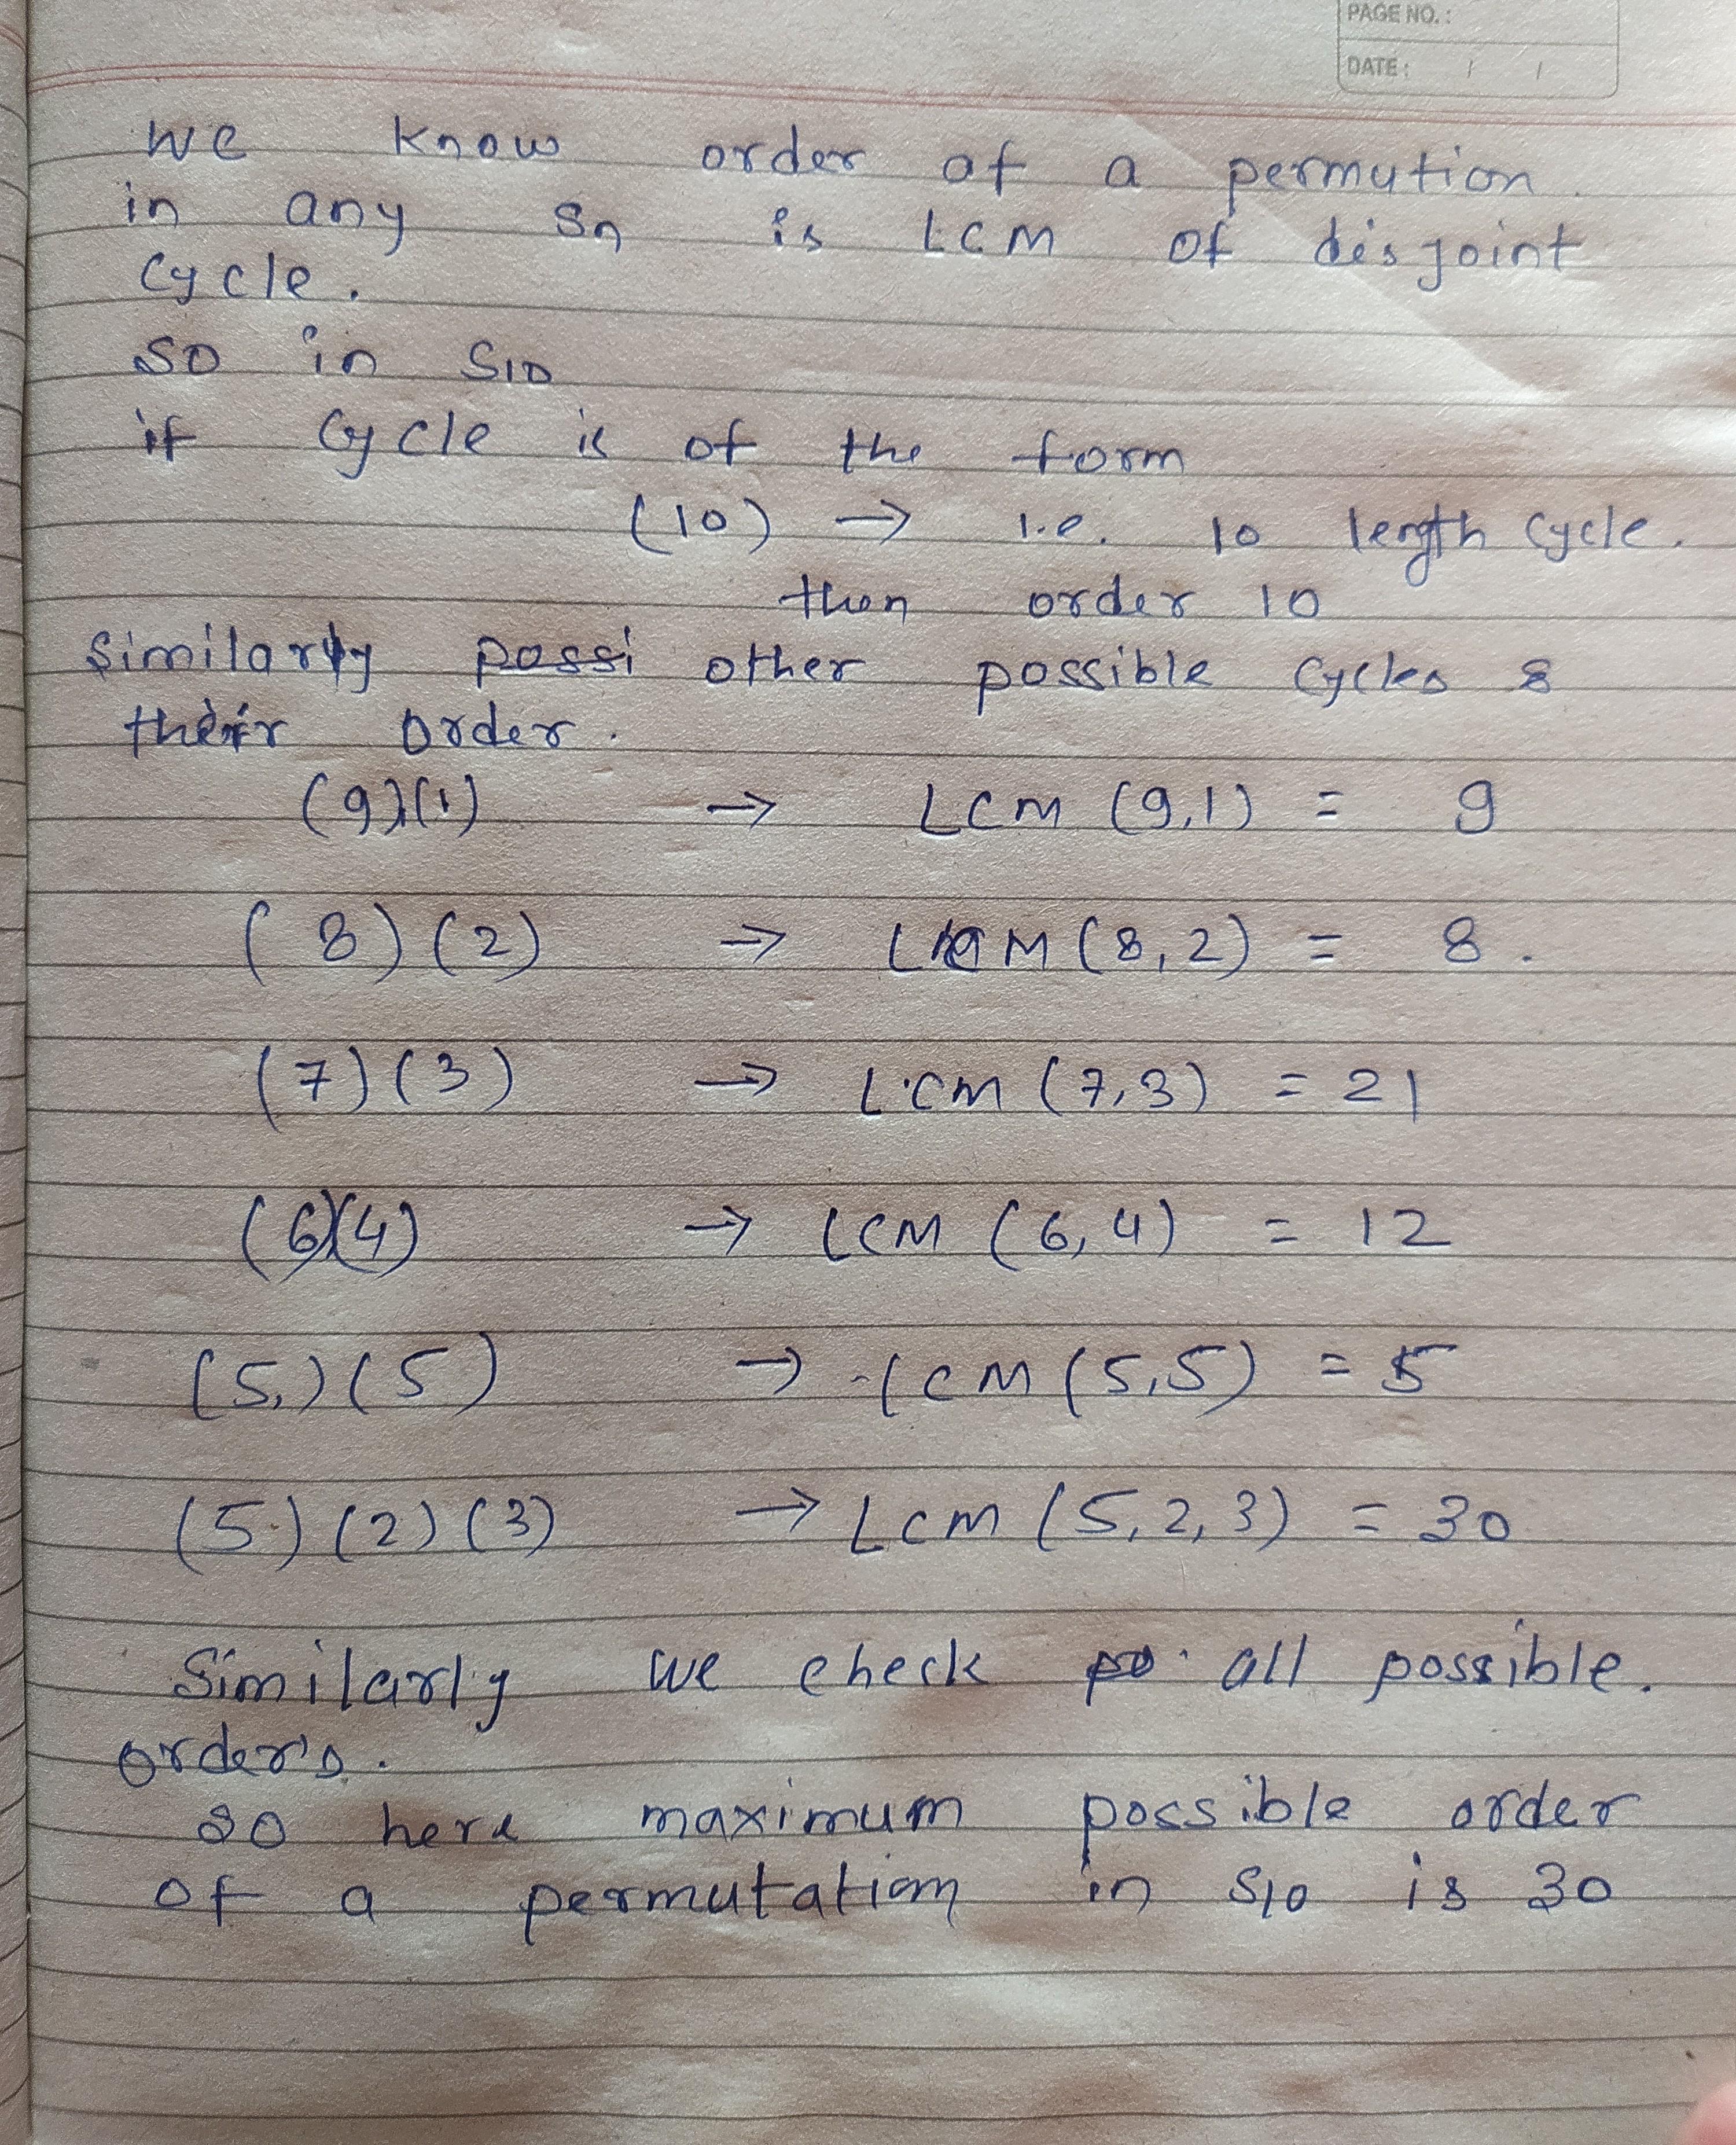 PAGE NO. :
DATE : / /
we know order of a permution
in any Sn is LCM of disjoint
Cycle.
So in S10
if Cycle is of the form
(10) → i.e. 10 length Cycle.
then order 10
Similarly possi other possible Cycles &
their order.
(9)(1) → LCM (9,1) = 9
(8)(2) → LCM (8,2) = 8.
(7)(3) → LCM (7,3) = 21
(6)(4) → LCM (6,4) = 12
(5,)(5) → LCM (5,5) = 5
(5)(2)(3) → LCM (5,2,3) = 30
Similarly we check po all possible.
order's.
so here maximum possible order
of a permutation in S10 is 30